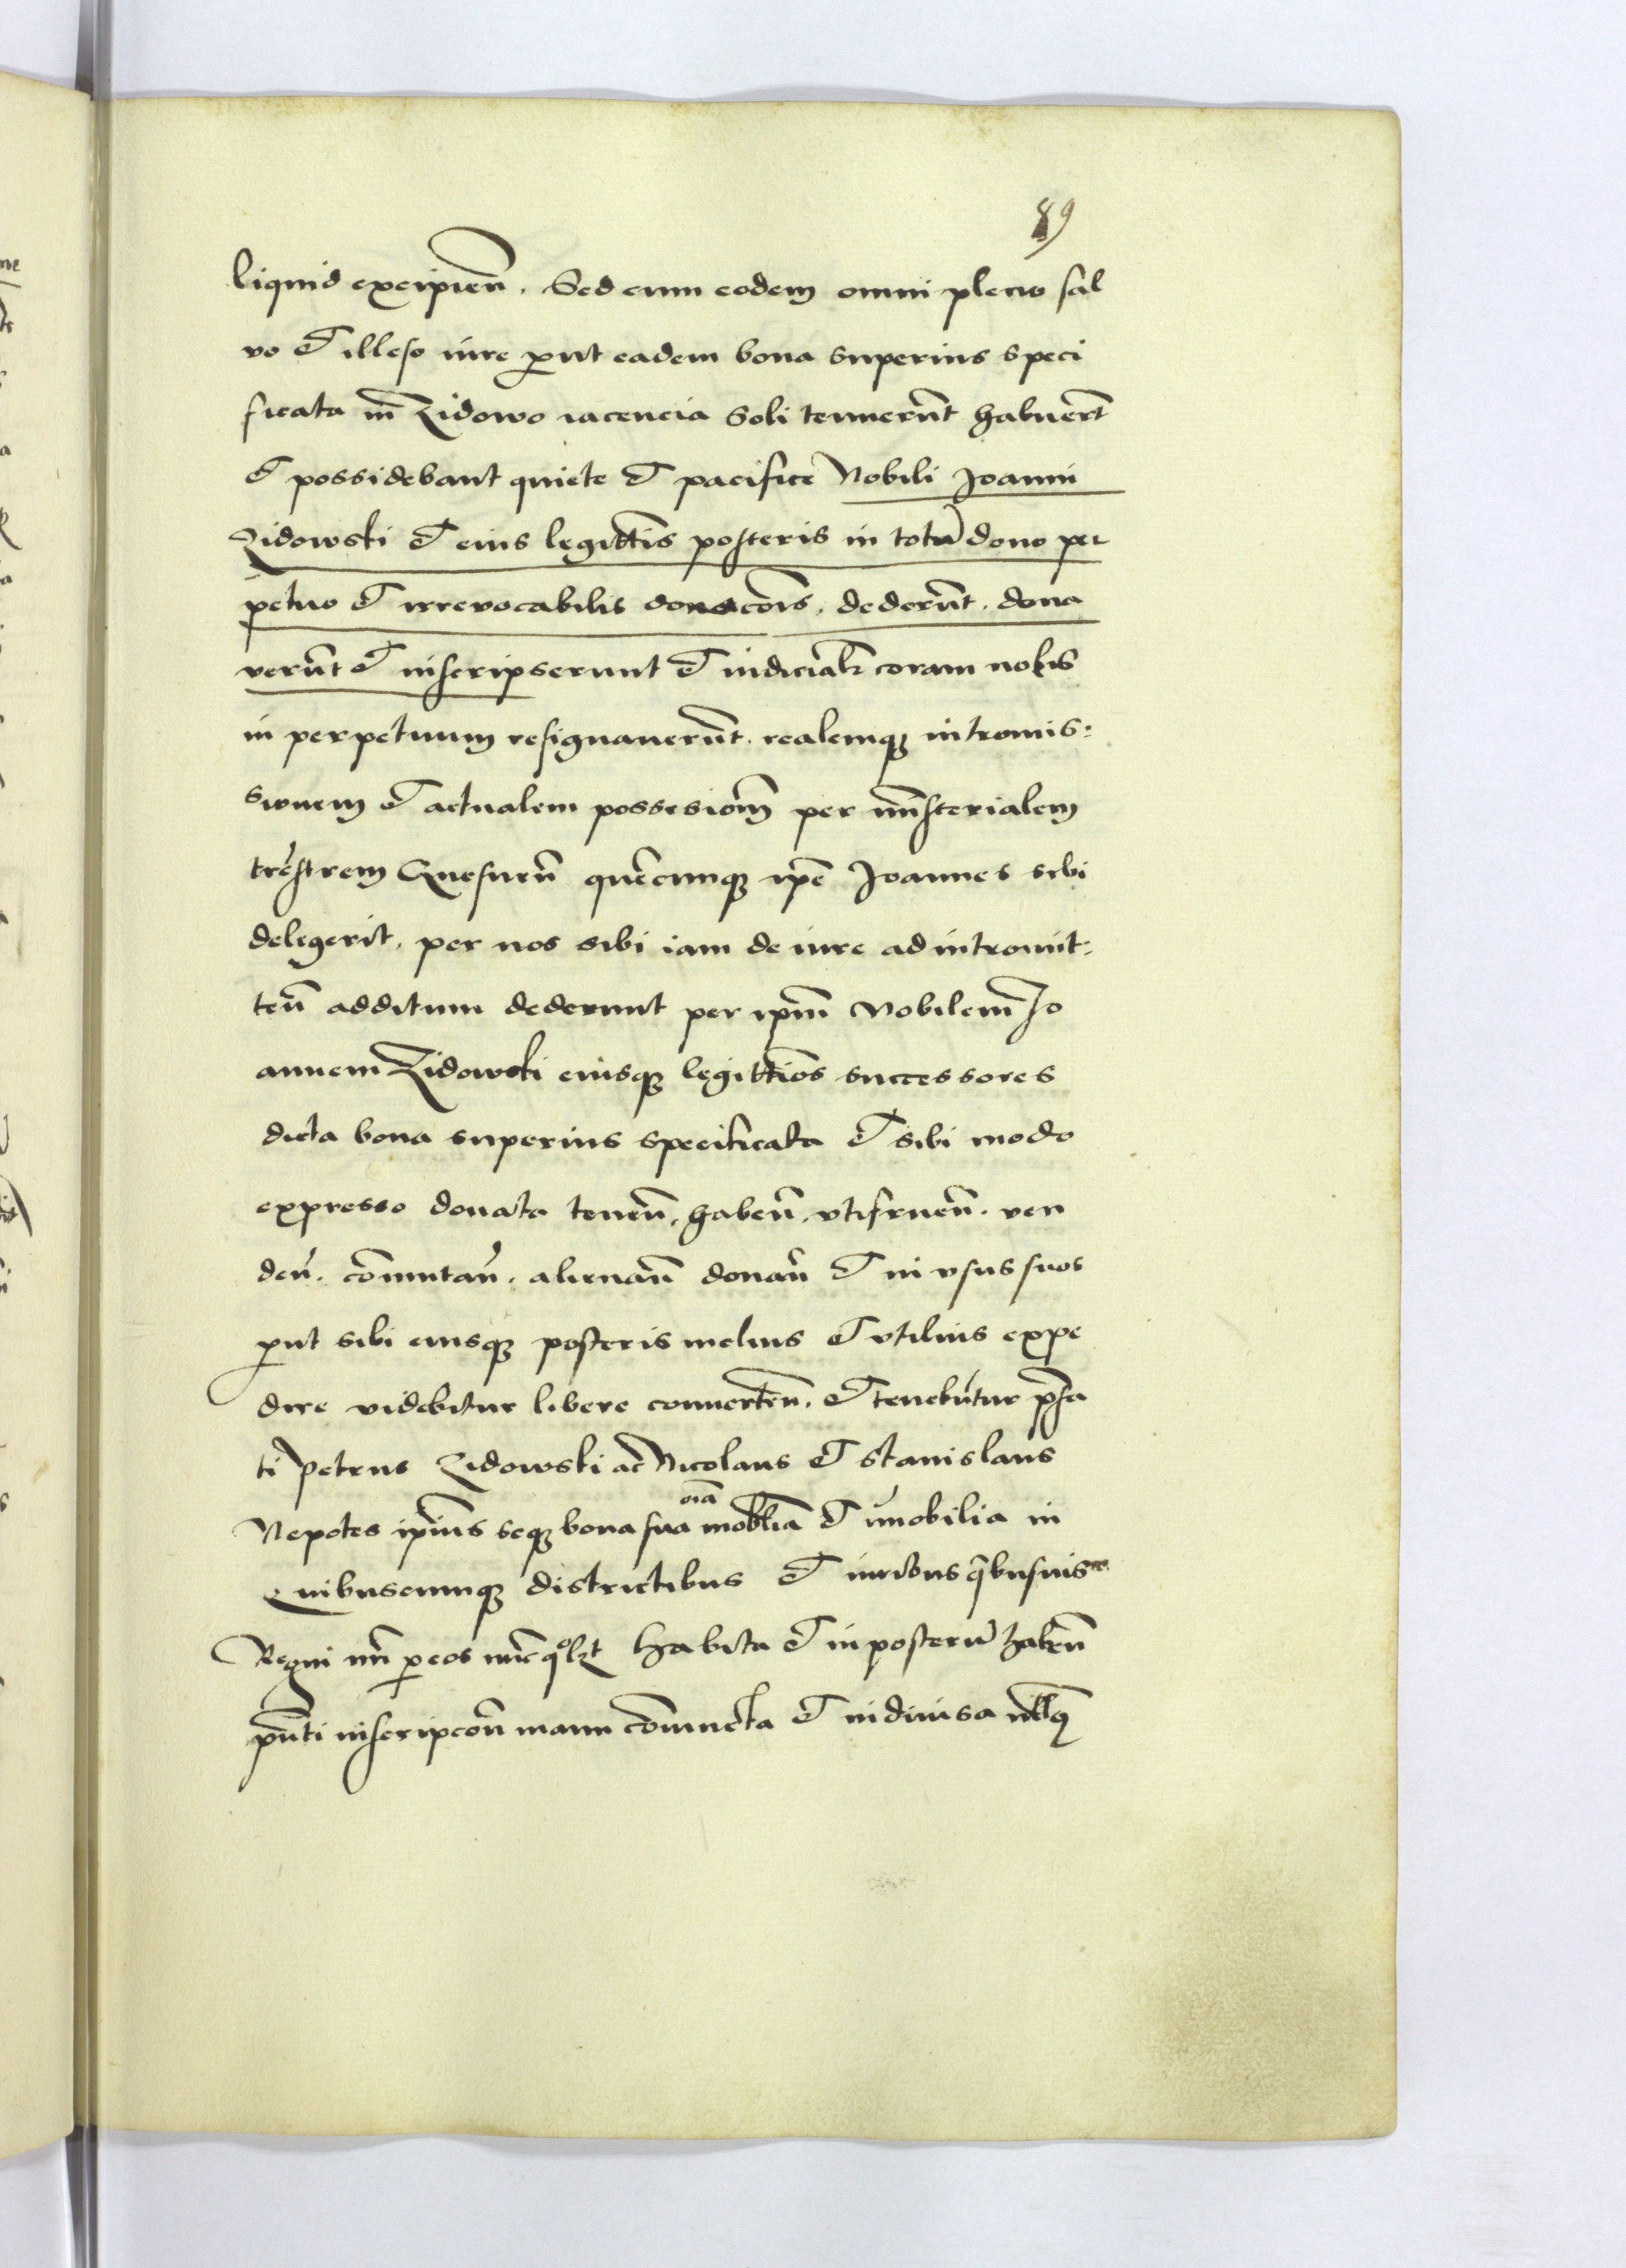 89
liquid excipien̄. Sed cum eodem omni pleno sal
vo et illeso iure ꝓut eadem bona superius speci
ficata in Zidowo iacencia Soli tenuerūt habuerūt
et possidebant quiete et pacifice Nobili Joanni
Zidowski et eius legittīs posteris in totū dono per
petuo et irrevocabilis donacōis. dederūt. dona
verūt et inscripserunt et iudicialr̄ coram nobis
in perpetuum resignaverūt. realemqꝫ intromis:
sionem et actualem possesionē per mīsterialem
trēstrem Gnesnen̄ quēcunqꝫ ip̄e Joannes sibi
delegerit. per nos sibi iam de iure ad intromit:
ten̄ additum dederunt per ip̄m Nobilem Jo
annem Zidowski eiusqꝫ legittīos successores
dicta bona superius specificata et sibi modo
expresso donata tenen̄. haben̄. utifruen̄. ven
den̄. cōmutan̄. alienan̄ donan̄ et in usus suos
ꝓut sibi eiusqꝫ posteris melius et utilius expe
dire videbitur libere converten̄. et tenebūtur p̄fa
ti Petrus Zidowski ac Nicolaus et Stanislaus
Nepotes ip̄ius seqꝫ bona sua oīa mobilia et īmobilia in
Quibuscunqꝫ districtibus et iuribus q̄busuis
Regni nr̄i ꝑ eos nūc qͦlꝫt habita et in posterū haben̄
pn̄ti inscripcōn̄ manu cōiuncta et indivisa